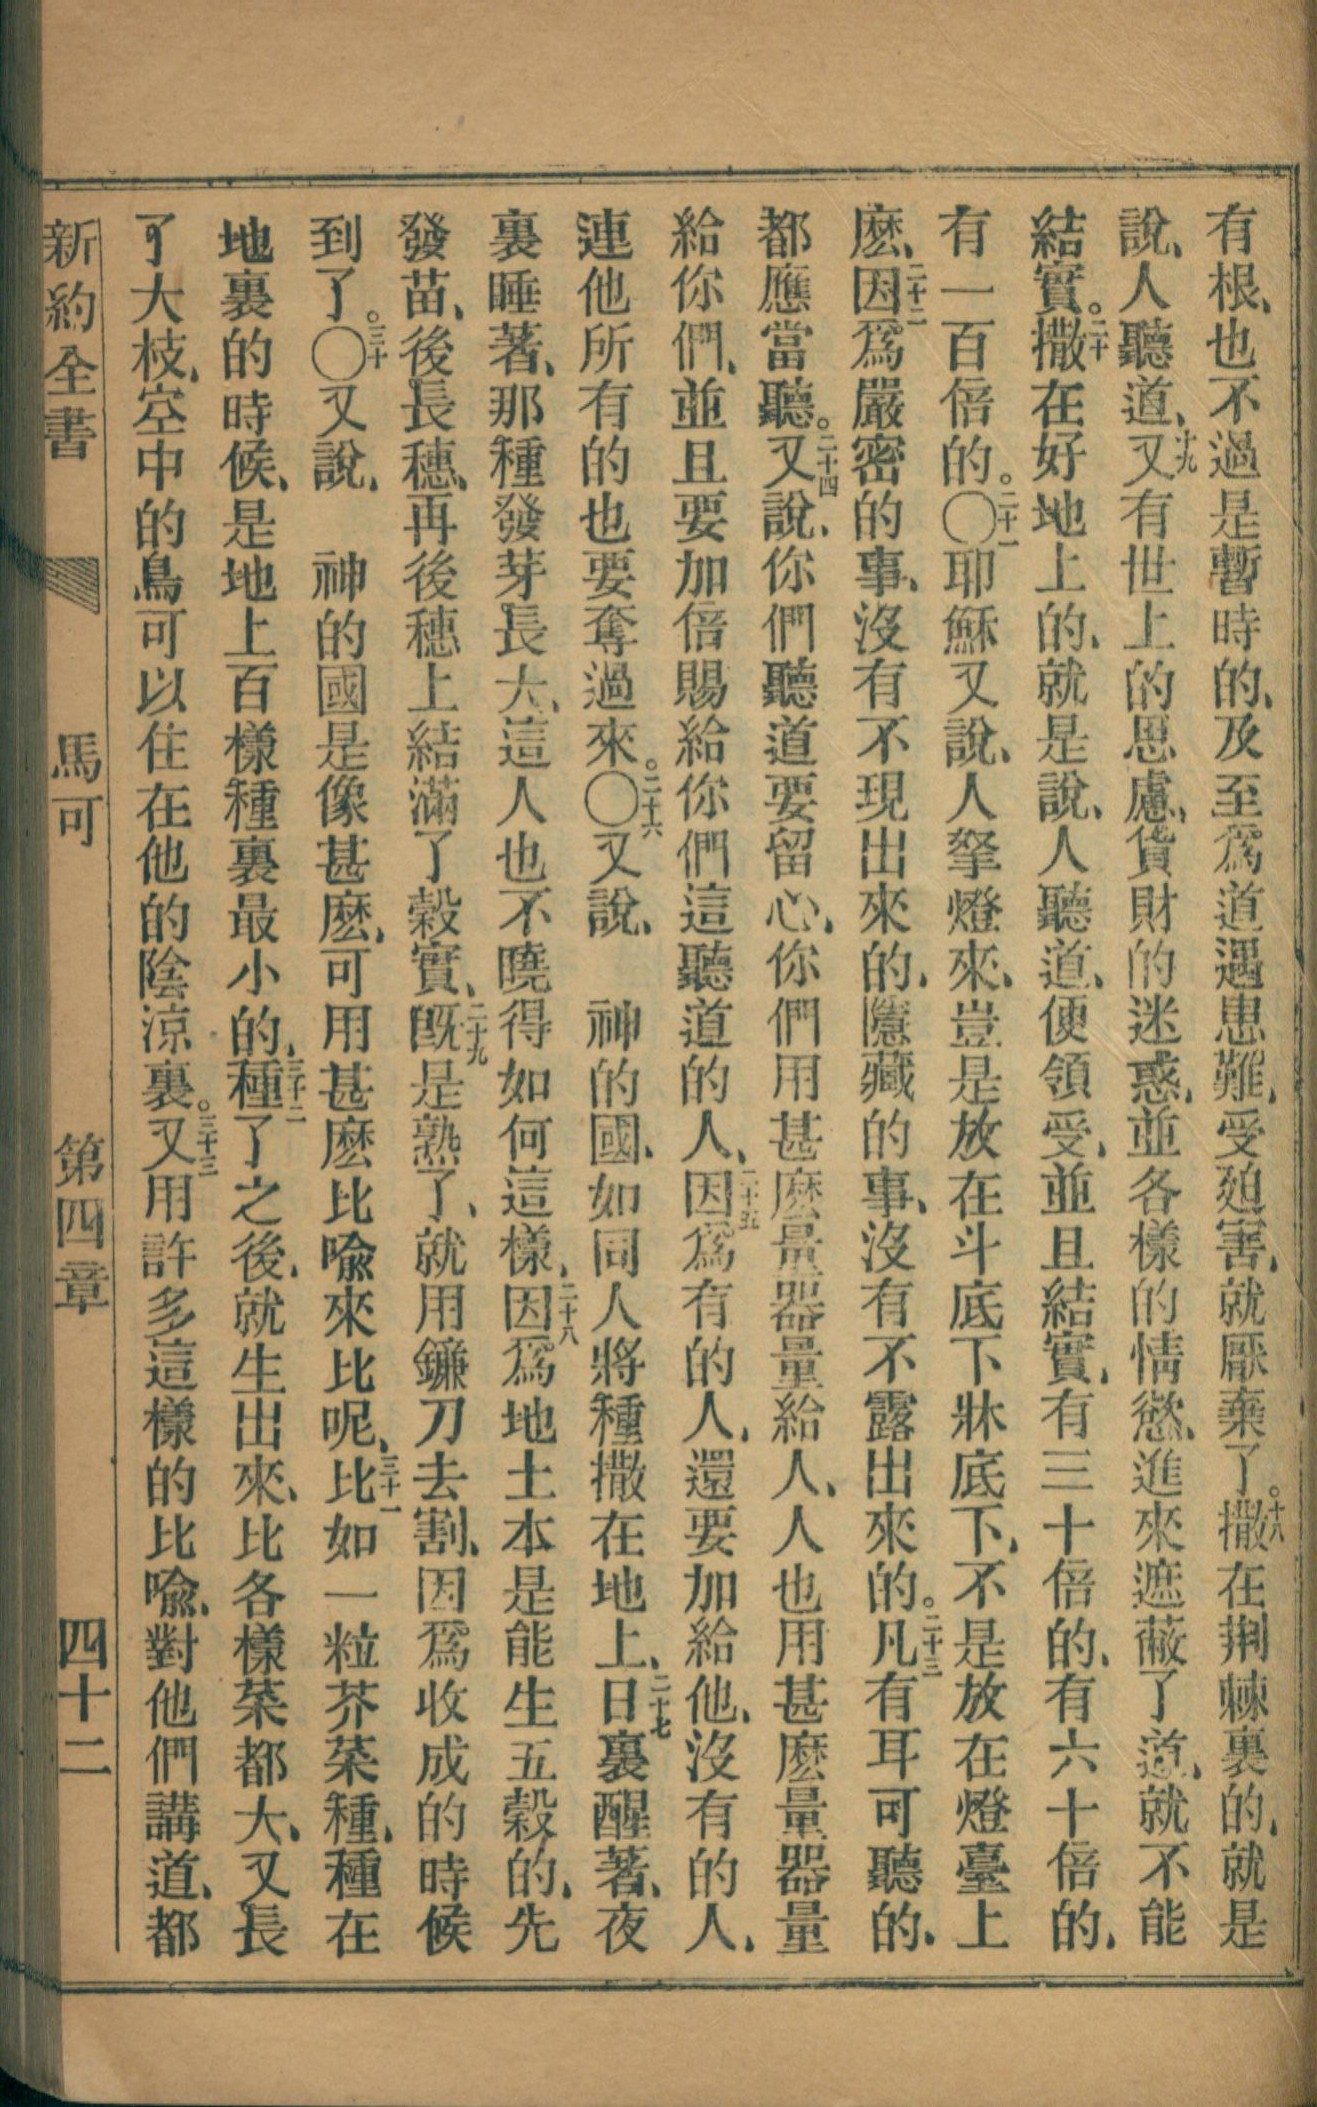 有根、也不過是暫時的、及至爲道遇患難、受廹害、就厭棄了。十八撒在荆棘裏的、就是
說、人聽道、十九又有世上的思慮、貨財的迷惑、並各樣的情慾、進來遮蔽了道、就不能
結實。二十撒在好地上的、就是說、人聽道、便領受、並且結實、有三十倍的、有六十倍的、
有一百倍的。〇二十一耶穌又說、人拏燈來、豈是放在斗底下牀底下、不是放在燈臺上
麽、二十二因爲嚴密的事、沒有不現出來的、隱藏的事、沒有不露出來的。二十三凡有耳可聽的、
都應當聽。二十四又說、你們聽道要留心、你們用甚麽量器量給人、人也用甚麽量器量
給你們、並且要加倍賜給你們這聽道的人、二十五因爲有的人、還要加給他、沒有的人、
連他所有的也要奪過來。〇二十六又說、　神的國、如同人將種撒在地上、二十七日裏醒著、夜
裏睡著、那種發芽長大、這人也不曉得如何這樣、二十八因爲地土本是能生五穀的、先
發苗、後長穗、再後穗上結滿了穀實、二十九旣是熟了、就用鐮刀去割、因爲收成的時候
到了。〇三十又說、　神的國是像甚麽、可用甚麽比喩來比呢、三十一比如一粒芥菜種、種在
地裏的時候、是地上百樣種裏最小的、三十二種了之後、就生出來、比各樣菜都大、又長
了大枝、空中的鳥可以住在他的陰涼裏。三十三又用許多這樣的比喩、對他們講道、都
新約全書　馬可　第四章　四十二